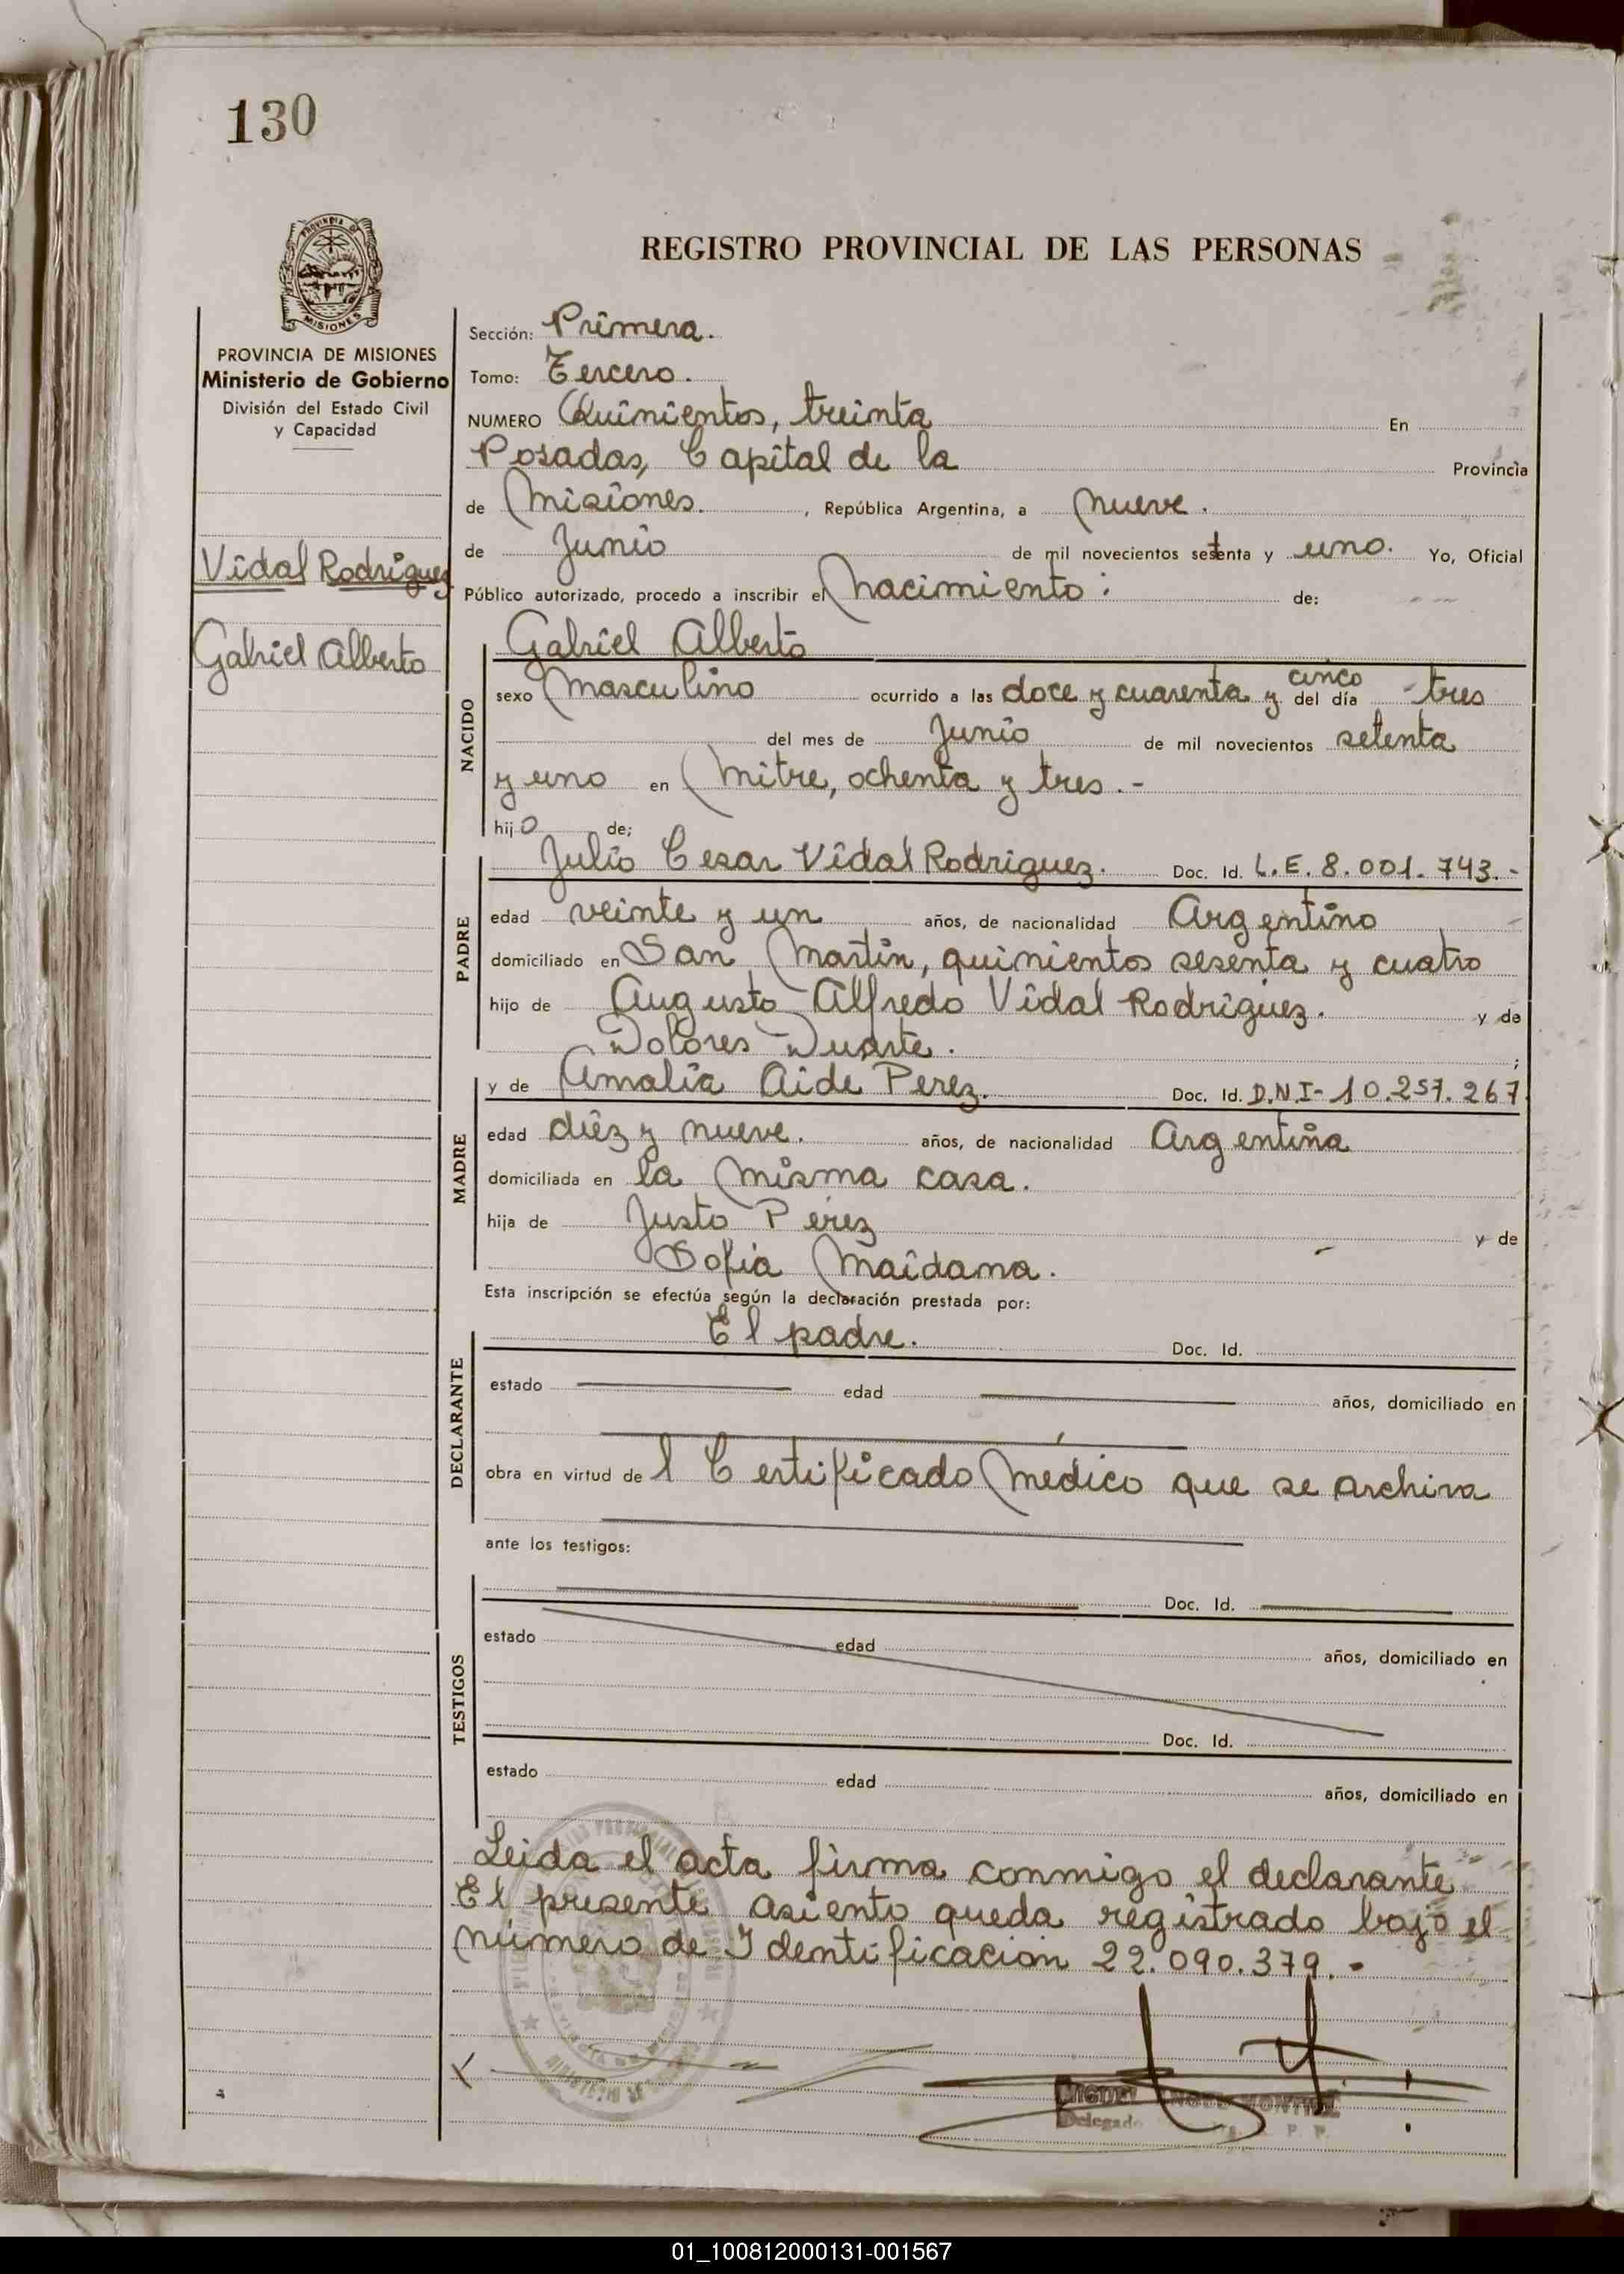 130
PROVINCIA DE
MISIONES
REGISTRO PROVINCIAL DE LAS PERSONAS
PROVINCIA DE MISIONES
Ministerio de Gobierno
División del Estado Civil
y Capacidad
Vidal Rodriguez
Gabriel Alberto
Sección: Primera.
Tomo: Tercero.
NUMERO Quinientos, treinta En
Posadas, Capital de la Provincia
de Misiones. , República Argentina, a nueve.
de Junio de mil novecientos setenta y uno. Yo, Oficial
Público autorizado, procedo a inscribir el nacimiento: de:
NACIDO
Gabriel Alberto
sexo Masculino ocurrido a las doce y cuarenta y cinco del día tres
del mes de Junio de mil novecientos setenta
y uno en Mitre, ochenta y tres.-
hijo de;
PADRE
Julio Cesar Vidal Rodriguez. Doc. Id. L.E. 8.001.743.-
edad veinte y un años, de nacionalidad Argentino
domiciliado en San Martin, quinientos sesenta y cuatro
hijo de Augusto Alfredo Vidal Rodriguez. y de
Dolores Duarte. ;
MADRE
y de Amalia Aide Perez. Doc. Id. D.N.I- 10.257.267
edad diez y nueve. años, de nacionalidad Argentina
domiciliada en la misma casa.
hija de Justo Perez y de
Sofia Maidana.
Esta inscripción se efectúa según la declaración prestada por:
DECLARANTE
El padre. Doc. Id.
estado edad años, domiciliado en
obra en virtud del Certificado Médico que se archiva
ante los testigos:
TESTIGOS
Doc. Id.
estado edad años, domiciliado en
Doc. Id.
estado edad años, domiciliado en
Leida el acta firma conmigo el declarante
El presente asiento queda registrado bajo el
número de Identificación 22.090.379.-
MIGUEL ANGEL
Delegado
01_100812000131-001567